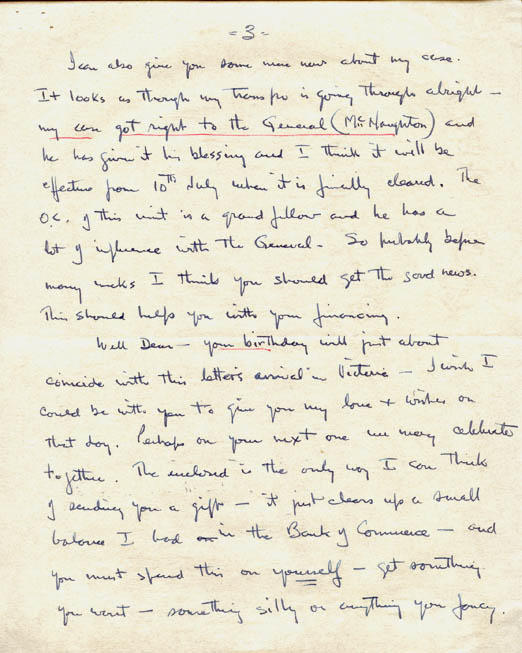 - 3 -
I can also give you some more news about my case.
It looks as though my transfer is going through alright —
my case got right to the General (McNaughton) and
he has given it his blessing and I think it will be
effective from 10th July when it is finally cleared. The
O.C. of this unit is a grand fellow and he has a
lot of influence with the General - So probably before
many weeks I think you should get the good news.
This should help you with your financing.
Well Dear — your birthday will just about
coincide with this letters arrival in Victoria — I wish I
could be with you to give you my love + wishes on
that day. Perhaps on your next one we may celebrate
together. The enclosed is the only way I can think
of sending you a gift — it just clears up a small
balance I had in the Bank of Commerce — and
you must spend this on yourself — get something
you want — something silly or anything you fancy.